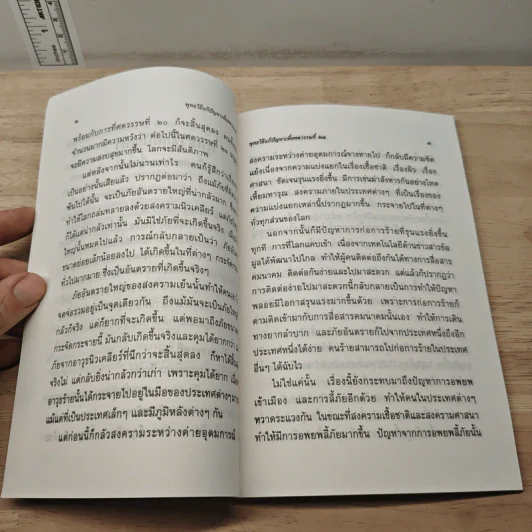 ๒
พุทธวิธีแก้ปัญหาเพื่อ
พร้อมกับการที่ศตวรรษที่ ๒๐ ก็จะสิ้นสุดลง
จำนวนมากมีความหวังว่า ต่อไปนี้ในศตวรรษที่
จะมีความสงบสุขมากขึ้น โลกจะมีสันติภาพ
แต่หลังจากนั้นไม่นานเท่าไร คนก็รู้สึกว่า
เป็นอย่างนั้นเสียแล้ว ปรากฏต่อมาว่า ถึงแม้โลก
พ้นไปได้นั้น จะเป็นภัยอันตรายใหญ่ที่น่ากลัวมาก
ทำให้โลกถล่มทลายลงด้วยสงครามนิวเคลียร์ แต่
ก็ได้แต่น่ากลัวเท่านั้น มันมิใช่ภัยที่จะเกิดขึ้นจริง
ใหญ่นั้นหมดไปแล้ว การณ์กลับกลายเป็นว่า ภัย
ขนาดย่อยเล็กน้อยลงไป ได้เกิดขึ้นในที่ต่างๆ กระจัด
ทั่วไปมากมาย ซึ่งเป็นอันตรายที่เกิดขึ้นจริงๆ
ภัยอันตรายใหญ่ของสงครามเย็นนั้นทำให้คน
จุดจ่อรวมอยู่เป็นจุดเดียวกัน ถึงแม้มันจะเป็นภัยใหญ่
กลัวก็จริง แต่ก็ยากที่จะเกิดขึ้น แต่พอมาถึงภัยขนาด
กระจัดกระจายนี้ มันกลับเกิดขึ้นจริงและคุมได้ยากกว่า
ภัยจากอาวุธนิวเคลียร์ที่นึกว่าจะสิ้นสุดลง ก็หาได้สิ้น
จริงไม่ แต่กลับยิ่งน่ากลัวกว่าเก่า เพราะคุมได้ยาก เมื่อ
อาวุธร้ายนั้นได้กระจายไปอยู่ในมือของประเทศต่างๆมาก
แม้แต่ที่เป็นประเทศเล็กๆ และมีภูมิหลังต่างๆ กัน
แต่ก่อนนี้ก็กลัวสงครามระหว่างค่ายอุดมการณ์
พุทธวิธีแก้ปัญหาเพื่อศตวรรษที่ ๒๑
๓
สงครามระหว่างค่ายอุดมการณ์จางหายไป ก็กลับมีความขัด
แย้งเนื่องจากความแบ่งแยกในเรื่องเชื้อชาติ เรื่องผิว เรื่อง
ศาสนา ชัดเจนรุนแรงยิ่งขึ้น มีการเข่นฆ่าสังหารกันอย่างโหด
เหี้ยมทารุณ สงครามภายในประเทศต่างๆ ที่เป็นเรื่องของ
ความแบ่งแยกเหล่านี้ปรากฏมากขึ้น กระจายไปในที่ต่างๆ
ทั่วทุกส่วนของโลก
นอกจากนั้นก็มีปัญหาการก่อการร้ายที่รุนแรงยิ่งขึ้น
ทุกที การที่โลกแคบเข้า เนื่องจากเทคโนโลยีด้านข่าวสารข้อ
มูลได้พัฒนาไปไกล ทำให้ผู้คนติดต่อถึงกันได้ทางการสื่อสาร
คมนาคม ติดต่อกันง่ายและไปมาสะดวก แต่แล้วก็ปรากฏว่า
การติดต่อง่ายไปมาสะดวกนี้กลับกลายเป็นการทำให้ปัญหา
พลอยมีโอกาสรุนแรงมากขึ้นด้วย เพราะการก่อการร้ายก็
ตามติดเข้ามากับการสื่อสารคมนาคมนั้นเอง ทำให้การเดิน
ทางยากลำบาก และภัยอันตรายก็ไปจากประเทศหนึ่งถึงอีก
ประเทศหนึ่งได้ง่าย คนร้ายสามารถไปก่อการร้ายในประเทศ
อื่นๆ ได้ฉับไว
ไม่ใช่แค่นั้น เรื่องนี้ยังกระทบมาถึงปัญหาการอพยพ
เข้าเมือง และการลี้ภัยอีกด้วย ทำให้คนในประเทศต่างๆ
หวาดระแวงกัน ในขณะที่สงครามเชื้อชาติและสงครามศาสนา
ทำให้มีการอพยพลี้ภัยมากขึ้น ปัญหาจากการอพยพลี้ภัยนั้น